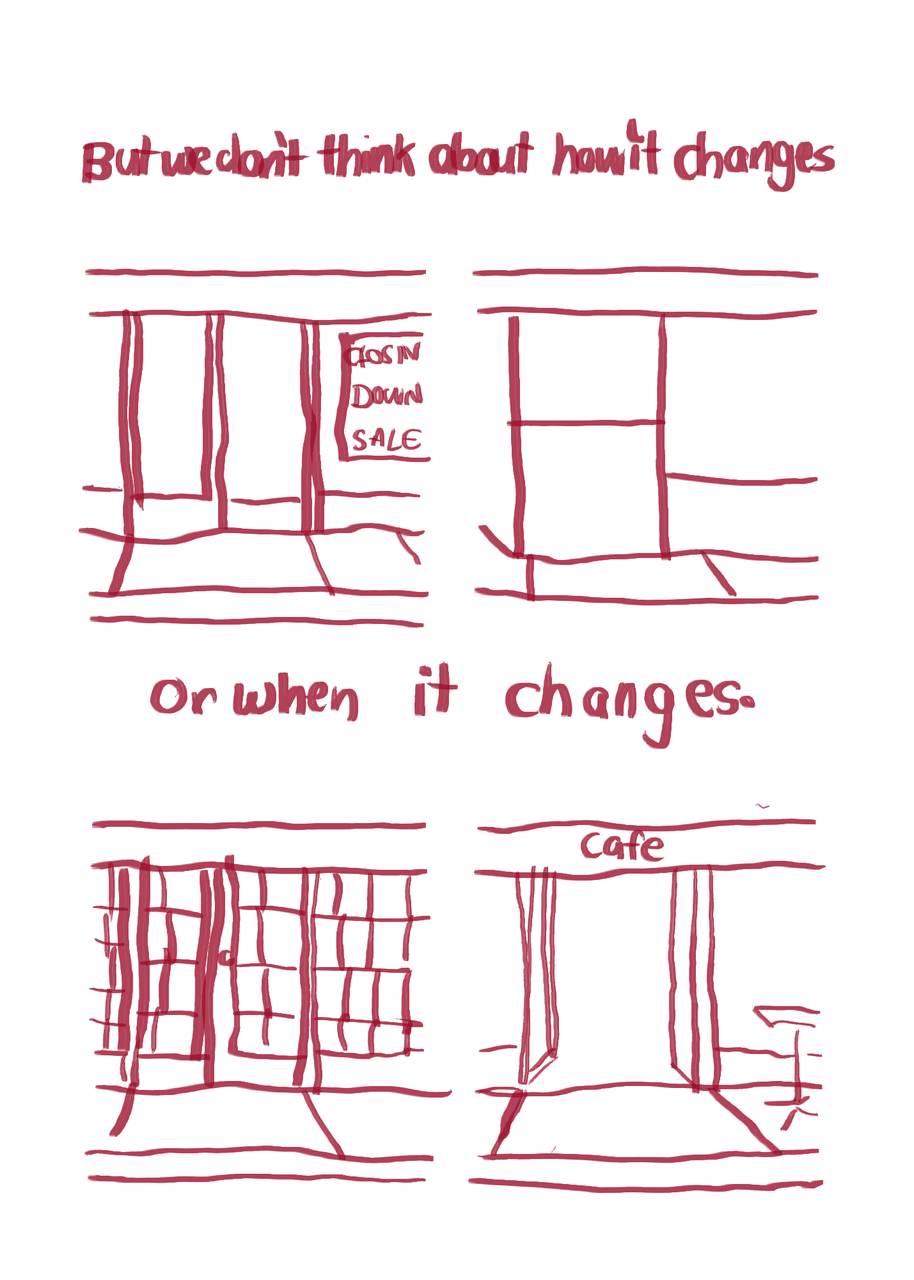 But we don't think about how it changes
CLOSIN
DOWN
SALE
Or when it changes.
Cafe